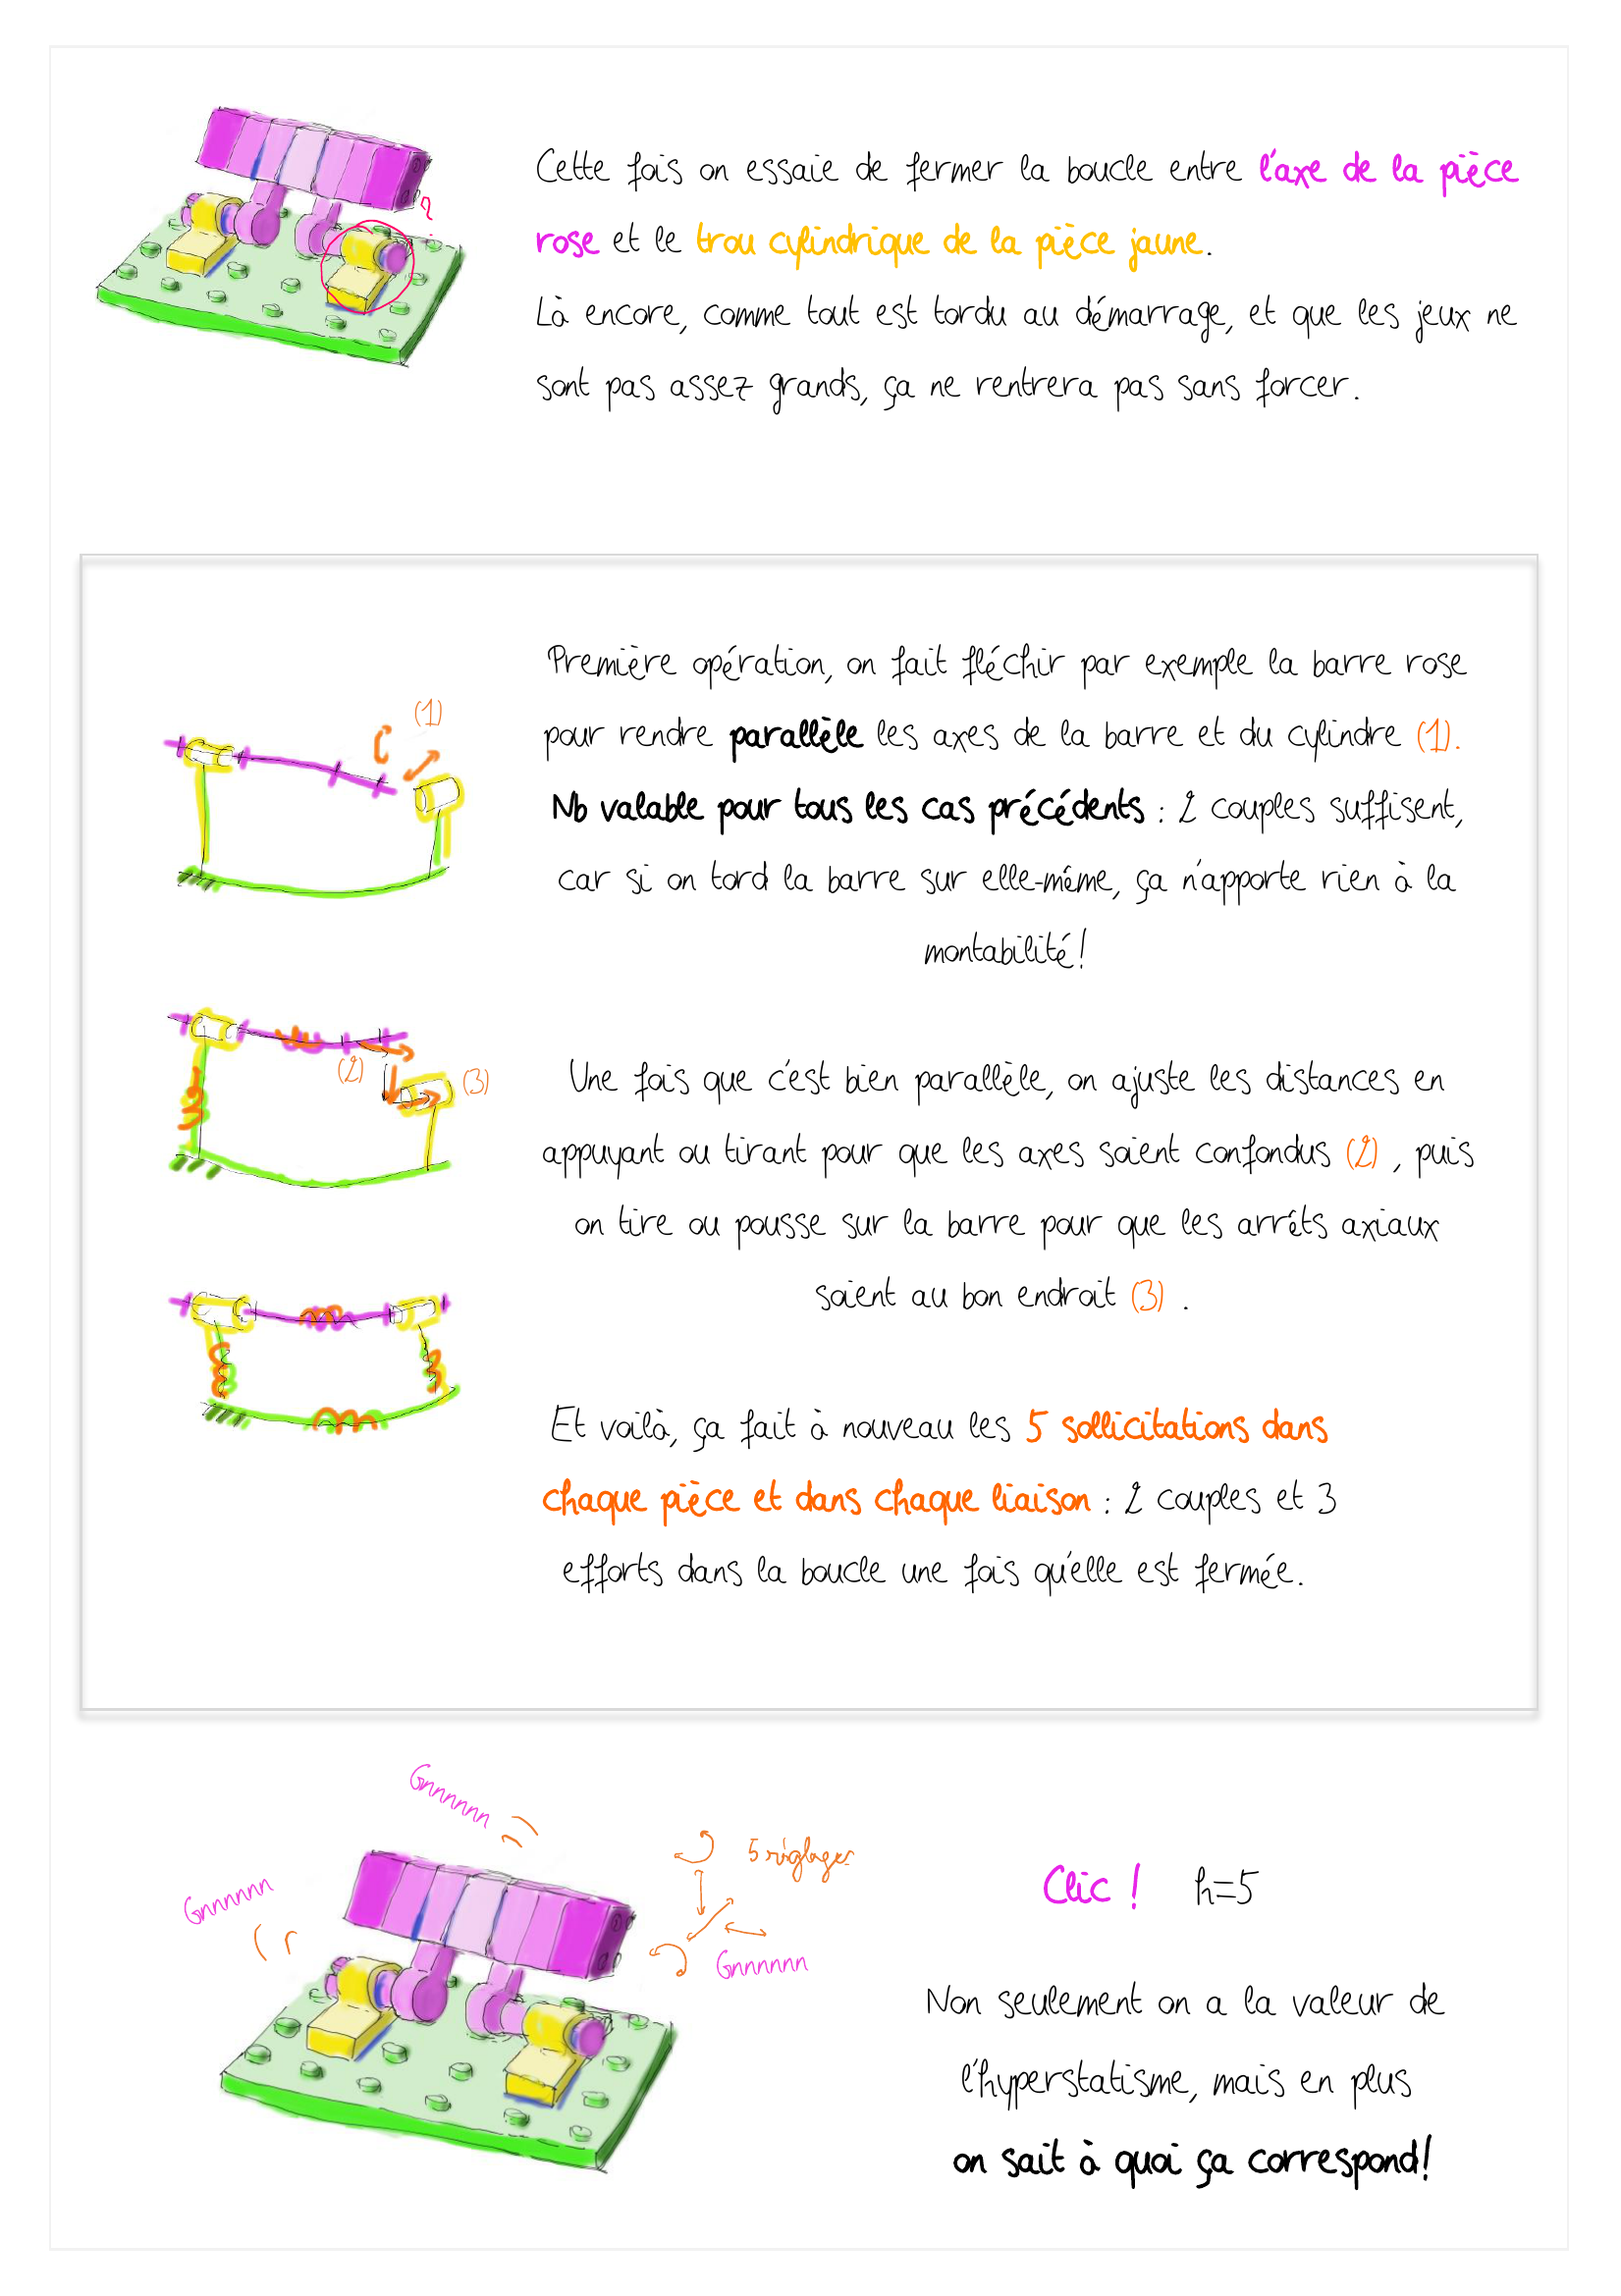 Cette fois on essaie de fermer la boucle entre l'axe de la pièce
rose et le trou cylindrique de la pièce jaune.
Là encore, comme tout est tordu au démarrage, et que les jeux ne
sont pas assez grands, ça ne rentrera pas sans forcer.
?
Première opération, on fait fléchir par exemple la barre rose
pour rendre parallèle les axes de la barre et du cylindre (1).
Nb valable pour tous les cas précédents : 2 couples suffisent,
car si on tord la barre sur elle-même, ça n'apporte rien à la
montabilité!
(1)
Une fois que c'est bien parallèle, on ajuste les distances en
appuyant ou tirant pour que les axes soient confondus (2) , puis
on tire ou pousse sur la barre pour que les arrêts axiaux
soient au bon endroit (3) .
(2)
(3)
Et voilà, ça fait à nouveau les 5 sollicitations dans
chaque pièce et dans chaque liaison : 2 couples et 3
efforts dans la boucle une fois qu'elle est fermée.
Gnnnnnn
Gnnnnnn
5 réglages
Gnnnnnn
Clic ! h=5
Non seulement on a la valeur de
l'hyperstatisme, mais en plus
on sait à quoi ça correspond!